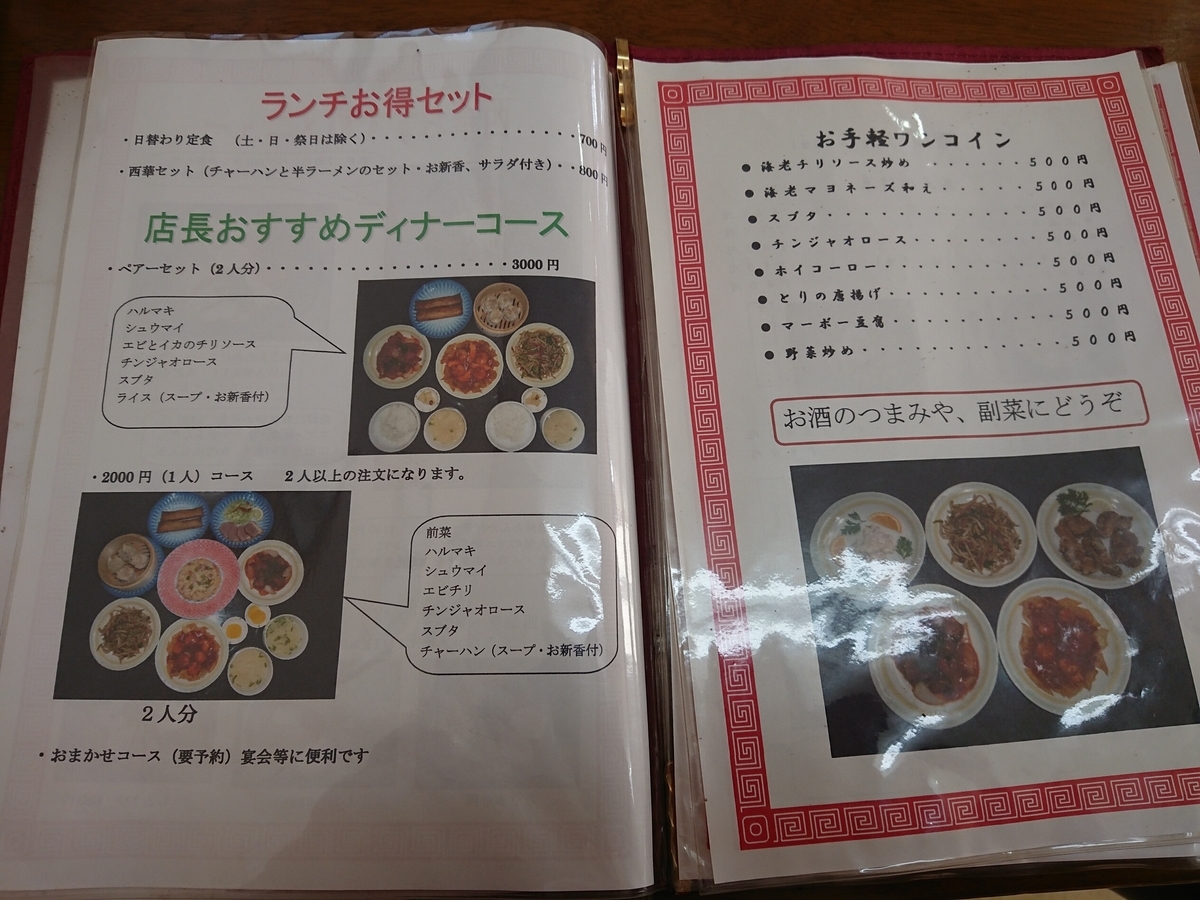 ランチお得セット
・日替わり定食　（土・日・祭日は除く）・・・・・・・・・・・・・・・・・700円
・西華セット（チャーハンと半ラーメンのセット・お新香、サラダ付き）・・800円
店長おすすめディナーコース
・ペアーセット（2人分）・・・・・・・・・・・・・・・・・・3000円
ハルマキ
シュウマイ
エビとイカのチリソース
チンジャオロース
スブタ
ライス（スープ・お新香付）
・2000円（1人）コース　　2人以上の注文になります。
前菜
ハルマキ
シュウマイ
エビチリ
チンジャオロース
スブタ
チャーハン（スープ・お新香付）
2人分
・おまかせコース（要予約）宴会等に便利です
お手軽ワンコイン
●海老チリソース炒め・・・・・・・・500円
●海老マヨネーズ和え・・・・・500円
●スブタ・・・・・・・・・・・・500円
●チンジャオロース・・・・・・・・500円
●ホイコーロー・・・・・・・・・・500円
●とりの唐揚げ・・・・・・・・・・500円
●マーボー豆腐・・・・・・・・・・500円
●野菜炒め・・・・・・・・・・・・500円
お酒のつまみや、副菜にどうぞ